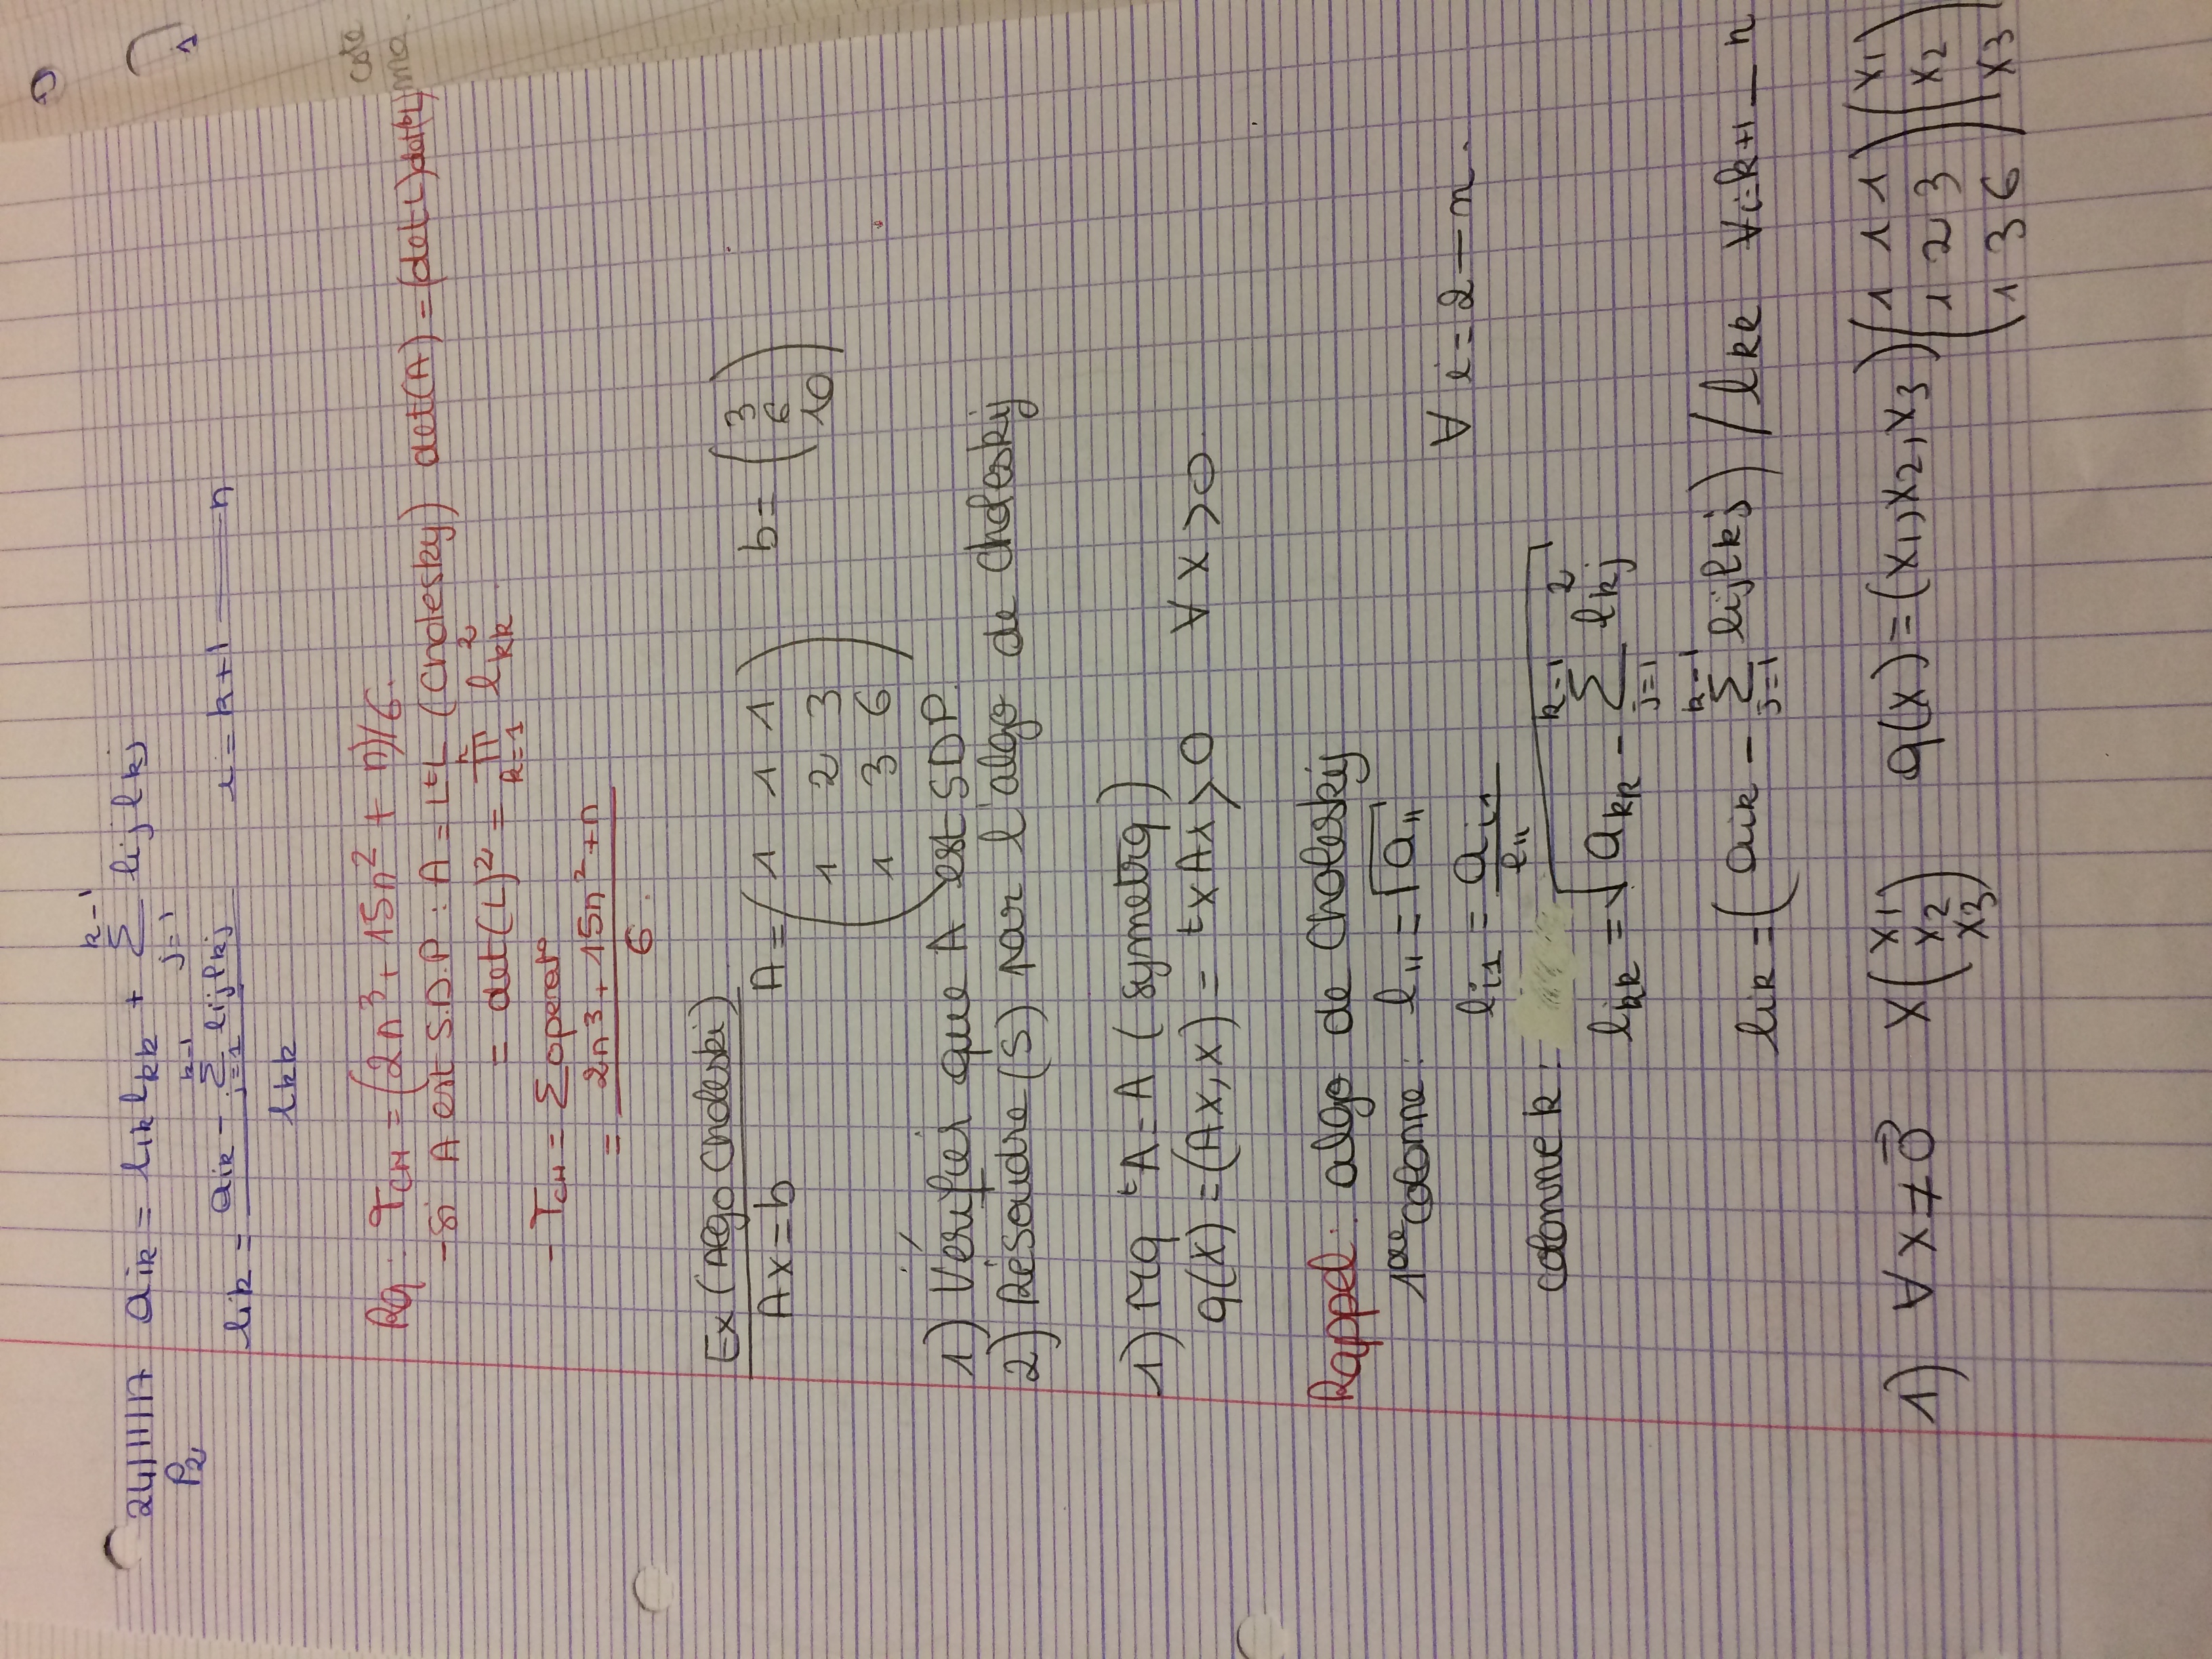 24/11/17 aik = lik lkk + Σ_{j=1}^{k-1} lij lkj
P2
lik = (aik - Σ_{j=1}^{k-1} lij lkj) / lkk i = k+1 —— n
1
Rq : TCH = (2n³ + 15n² + n)/6.
cote
- Si A est S.D.P : A = LᵗL (Cholesky) det(A) = (det L) det(ᵗL)
ma.
= det(L)² = Π_{k=1}^{n} l²kk
- TCH = Σ operat°
= (2n³ + 15n² + n) / 6.
Ex (Algo Choleski)
Ax = b A = ( 1 1 1 b = ( 3
1 2 3 6
1 3 6 ) 10 )
1) Vérifier que A est SDP.
2) Résoudre (S) par l'algo de Cholesky
1) Mq ᵗA = A (symetrq)
q(x) = (Ax, x) = ᵗxAx > 0 ∀ x > 0.
Rappel : algo de Cholesky
1ère colonne : l11 = √a11
li1 = ai1 / l11 ∀ i = 2 — n.
colonne k :
lkk = √(akk - Σ_{j=1}^{k-1} l²kj)
lik = (aik - Σ_{j=1}^{k-1} lij lkj) / lkk ∀ i = k+1 — n
1) ∀ x ≠ 0⃗ X ( x1 x2 x3 ) q(x) = (x1, x2, x3) ( 1 1 1 ( x1
1 2 3 x2
1 3 6 ) x3